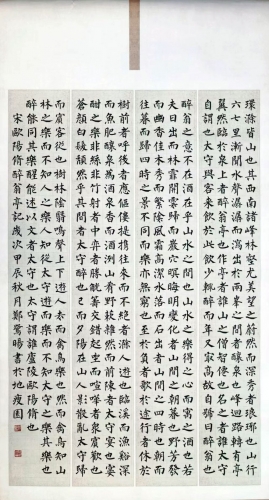 環滁皆山也其西南諸峰林壑尤美望之蔚然而深秀者琅琊也山行
六七里漸聞水聲潺潺而瀉出於兩峯之間者釀泉也峰迴路轉有亭
翼然臨於泉上者醉翁亭也作亭者誰山之僧智僊也名之者誰太守
自謂也太守與客來飲於此飲少輒醉而年又最高故自號曰醉翁也
醉翁之意不在酒在乎山水之間也山水之樂得之心而寓之酒也若
夫日出而林霏開雲歸而巖穴暝晦明變化者山間之朝暮也野芳發
而幽香佳木秀而繁陰風霜高潔水落而石出者山間之四時也朝而
往暮而歸四時之景不同而樂亦無窮也至於負者歌於途行者休於
樹前者呼後者應傴僂提攜往來而不絕者滁人遊也臨溪而漁溪深
而魚肥釀泉為酒泉香而酒洌山肴野蔌雜然而前陳者太守宴也宴
酣之樂非絲非竹射者中弈者勝觥籌交錯起坐而喧嘩者眾賓歡也
蒼顏白髮頹然乎其間者太守醉也已而夕陽在山人影散亂太守歸
而賓客從也樹林陰翳鳴聲上下遊人去而禽鳥樂也然而禽鳥知山
林之樂而不知人之樂人知從太守遊而樂而不知太守之樂其樂也
醉能同其樂醒能述以文者太守也太守謂誰廬陵歐陽脩也
宋歐陽脩醉翁亭記歲次甲辰秋月鄭鷺書於地瘦園